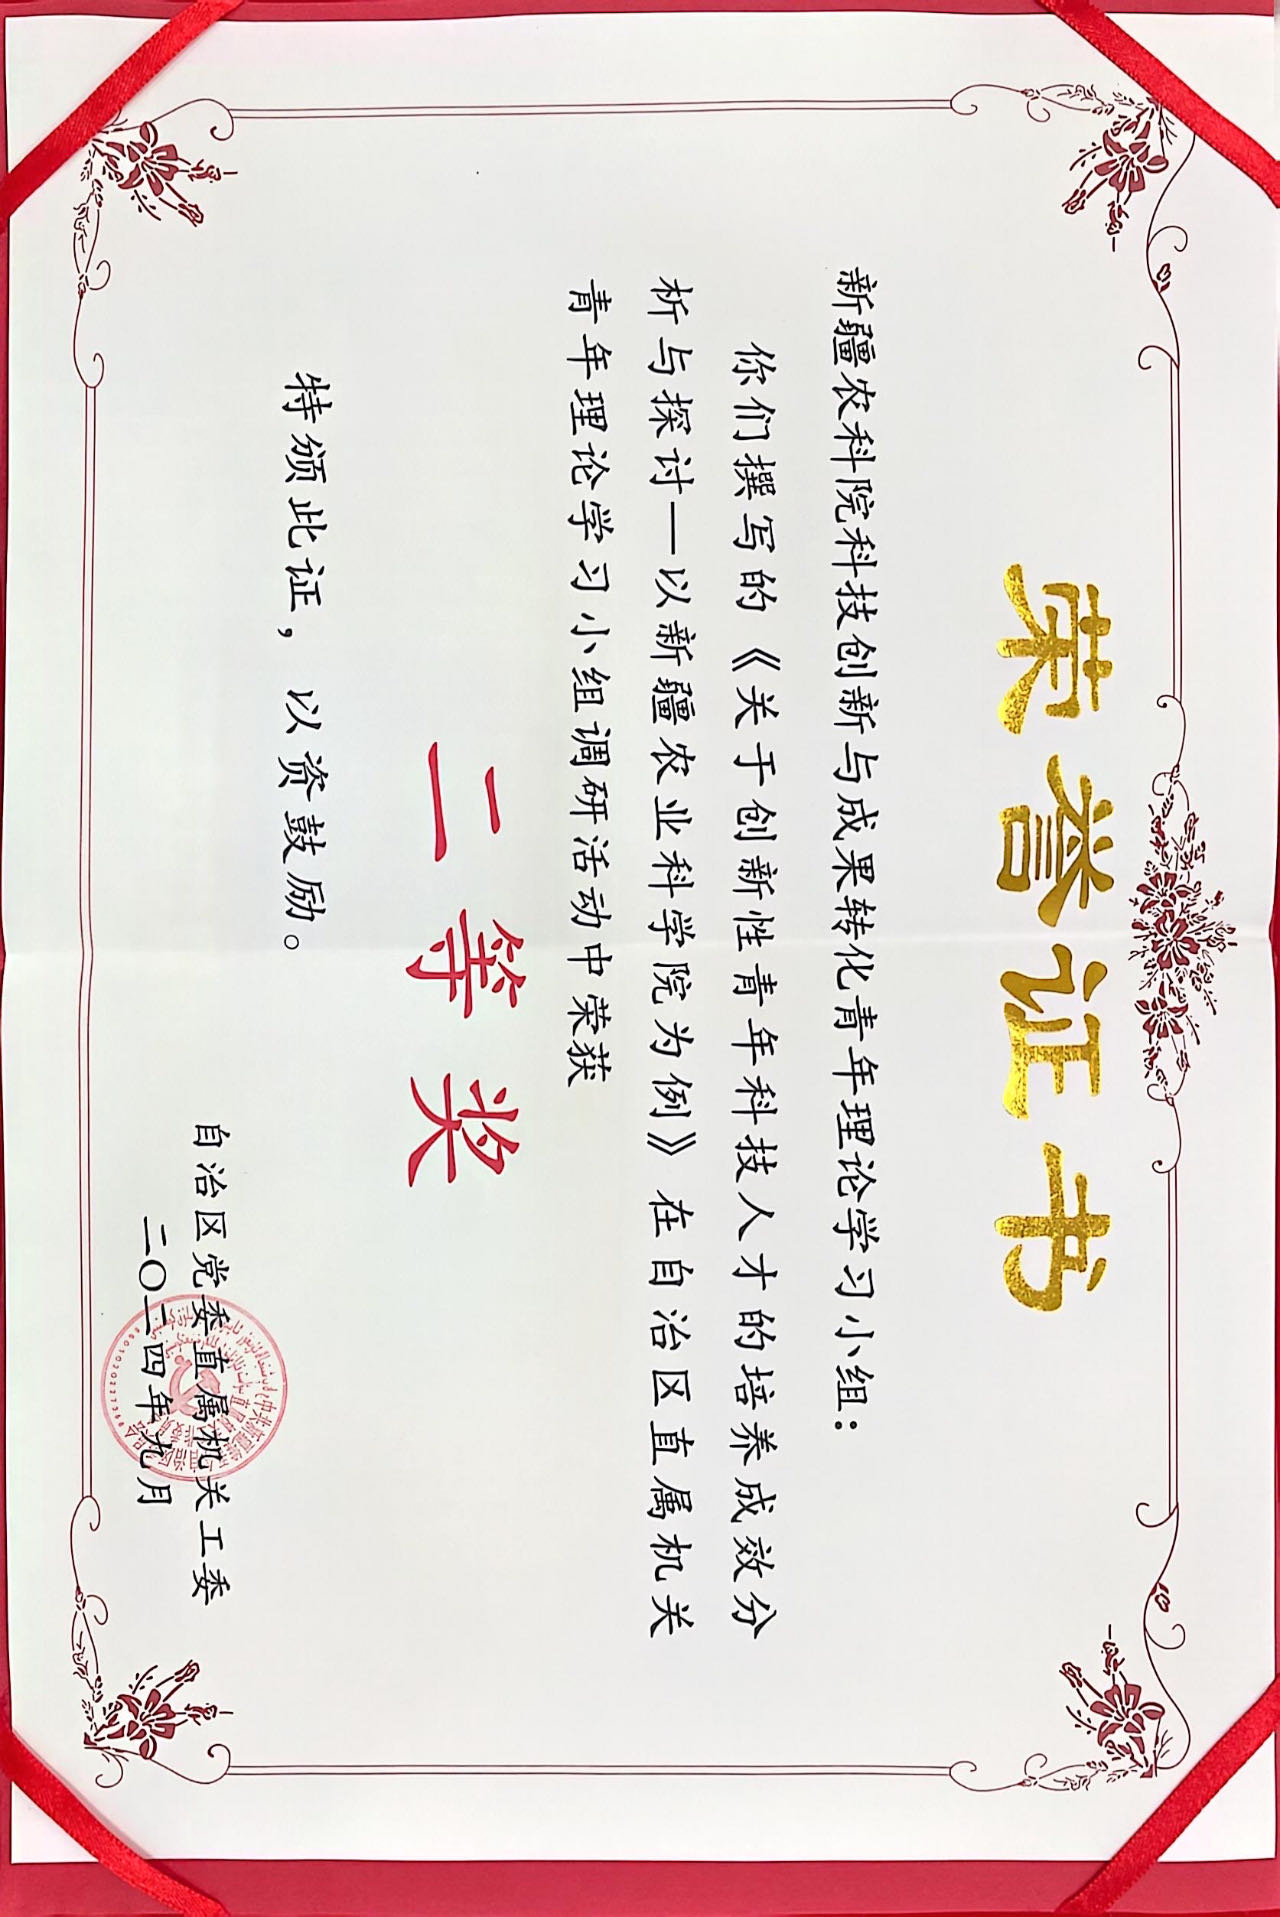 荣誉证书
新疆农科院科技创新与成果转化青年理论学习小组：
你们撰写的《关于创新性青年科技人才的培养成效分
析与探讨—以新疆农业科学院为例》在自治区直属机关
青年理论学习小组调研活动中荣获
二等奖
特颁此证，以资鼓励。
自治区党委直属机关工委
二〇二四年九月